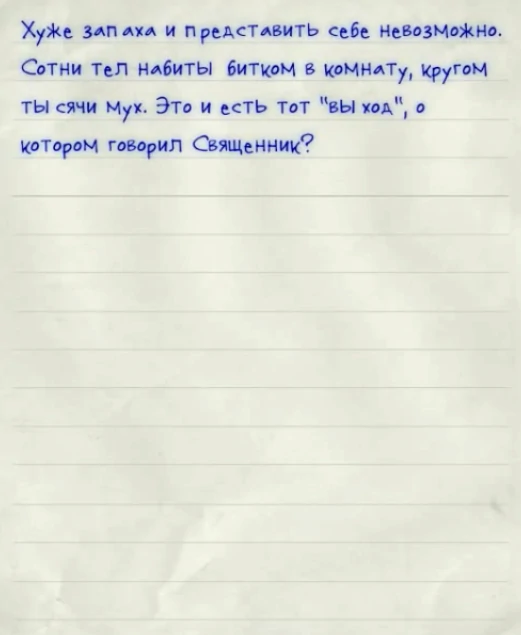 Хуже запаха и представить себе невозможно.
Сотни тел набиты битком в комнату, кругом
тысячи мух. Это и есть тот "выход", о
котором говорил Священник?